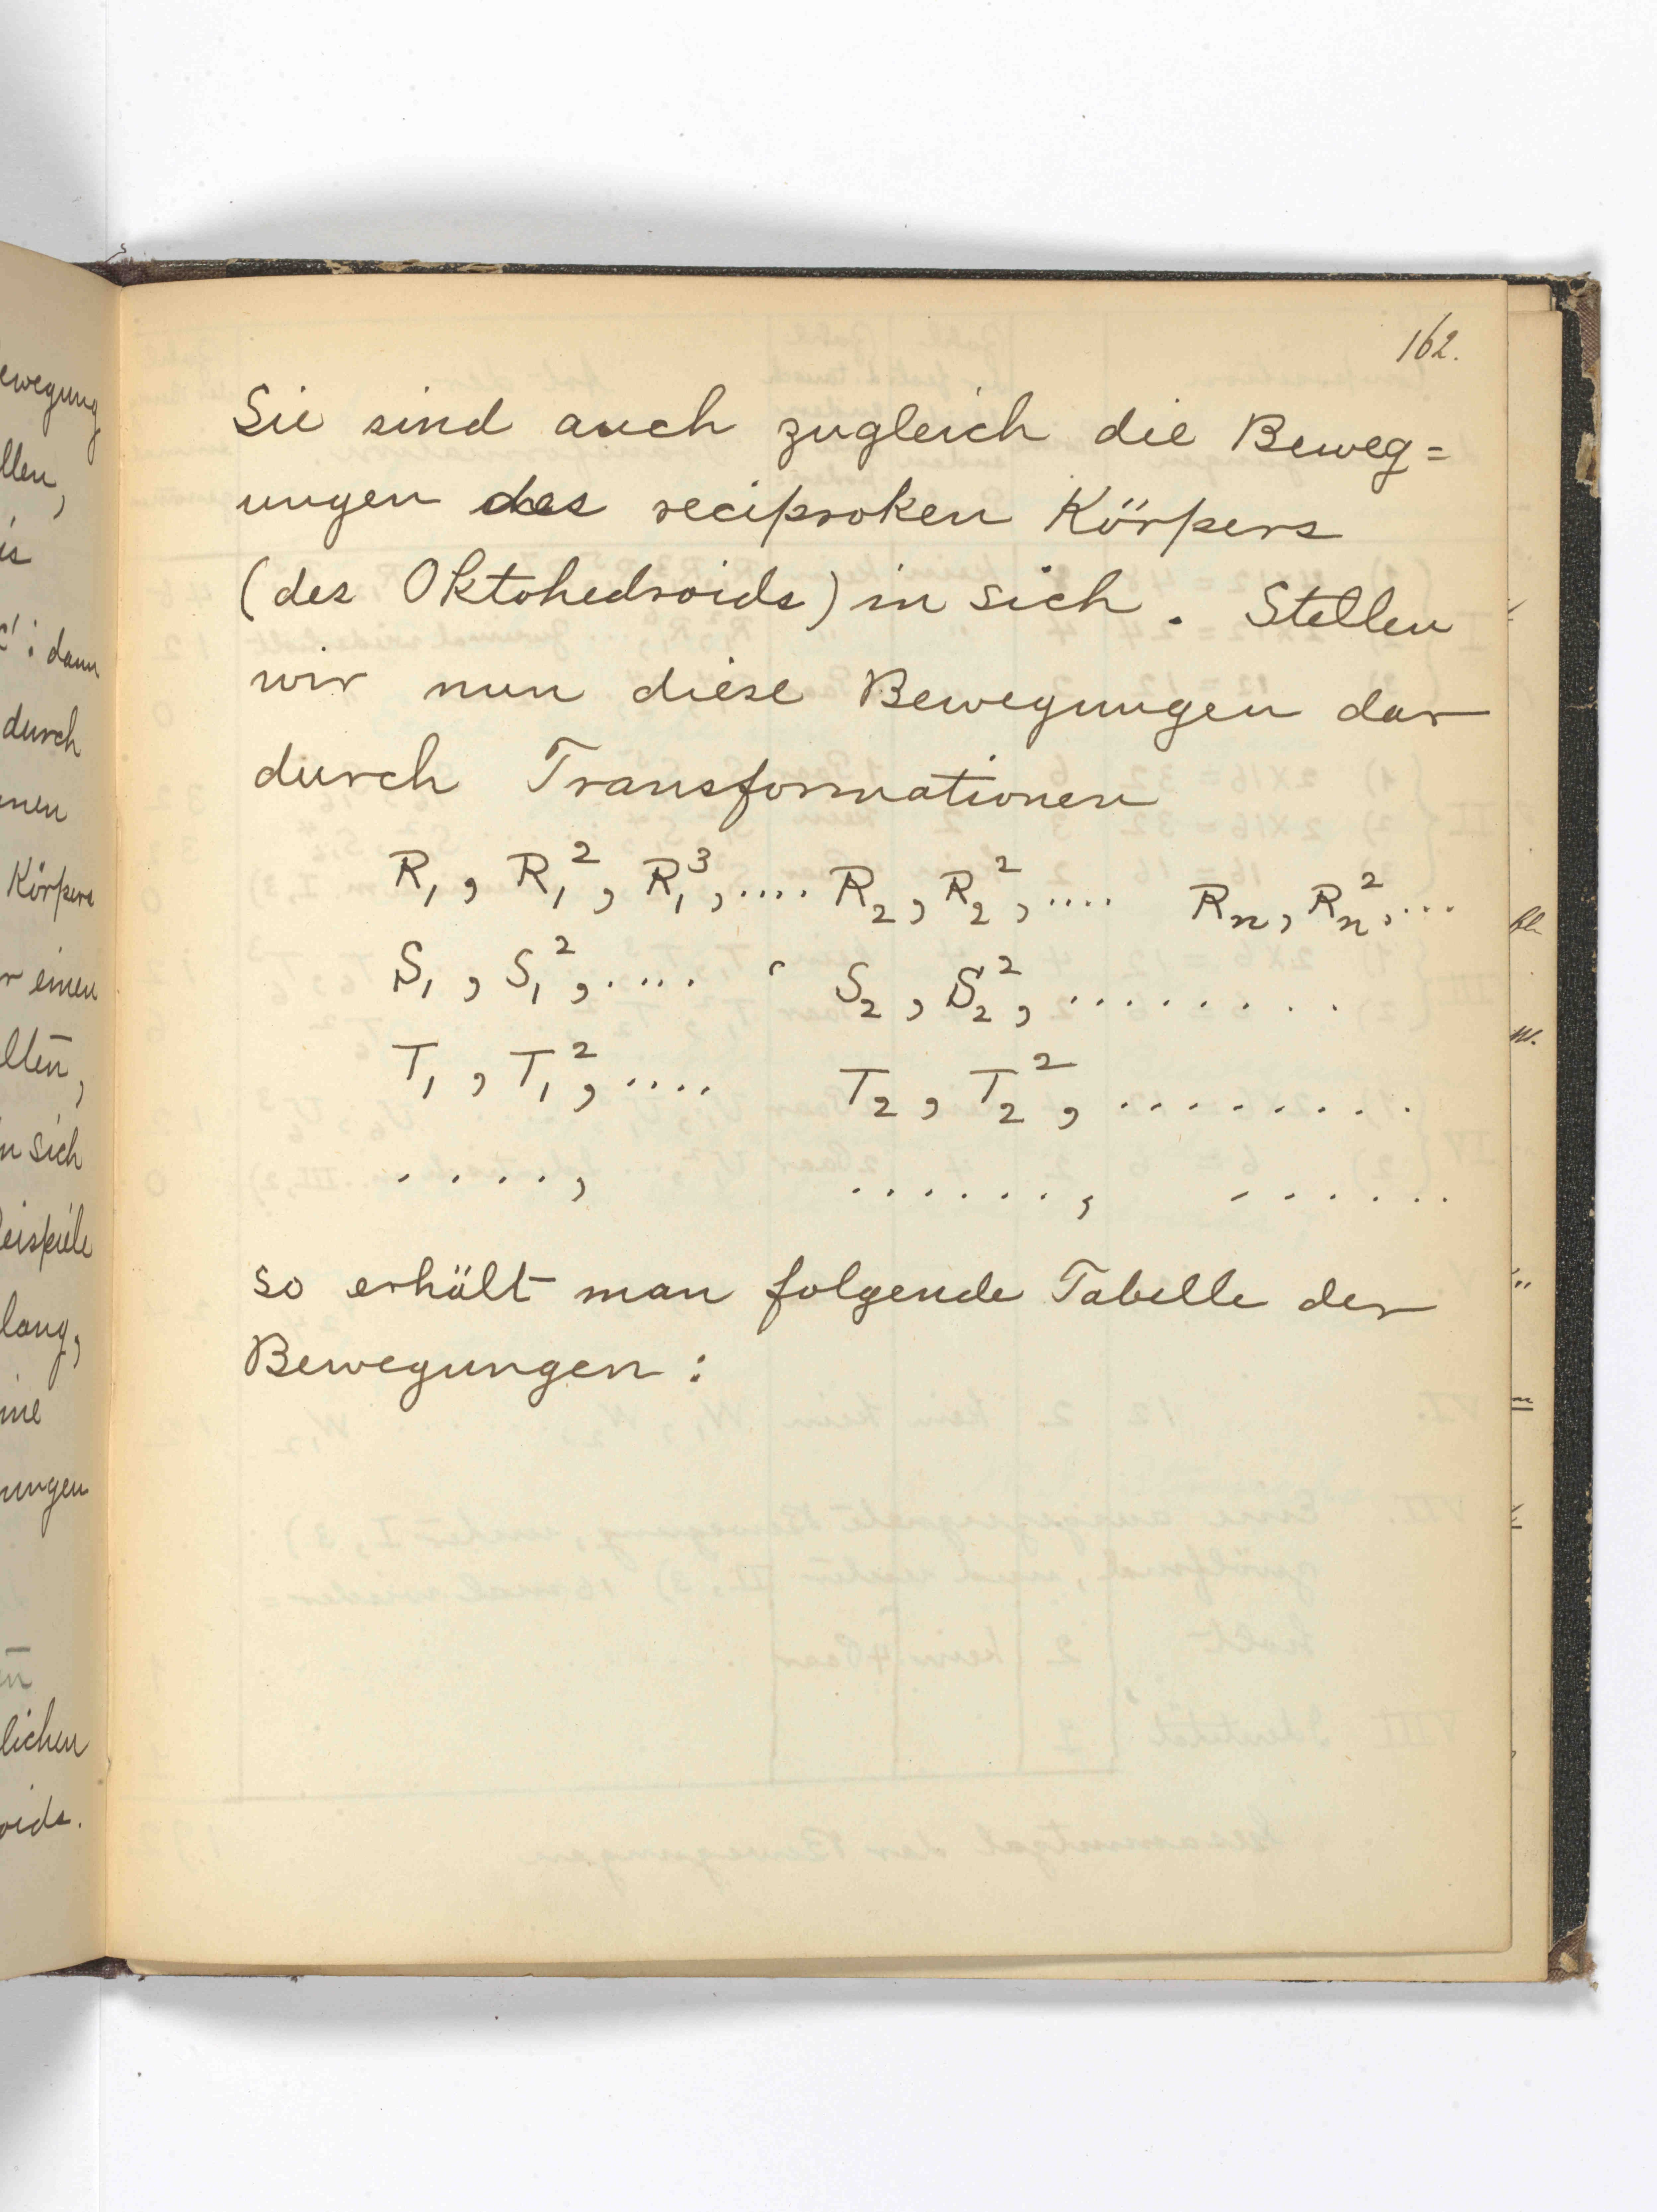 162.
Sie sind auch zugleich die Beweg=
ungen des reciproken Körpers
(des Oktohedroids) in sich. Stellen
wir nun diese Bewegungen dar
durch Transformationen
R₁, R₁², R₁³, .... R₂, R₂², .... Rₙ, Rₙ², ...
S₁, S₁², ..... S₂, S₂², .........
T₁, T₁², .... T₂, T₂², .........
....., ......., ......
so erhält man folgende Tabelle der
Bewegungen:
ewegung
llen,
is
: dann
durch
nen
Körpers
r einen
lten,
n sich
eispiele
lang,
ine
nungen
en
lichen
oids.